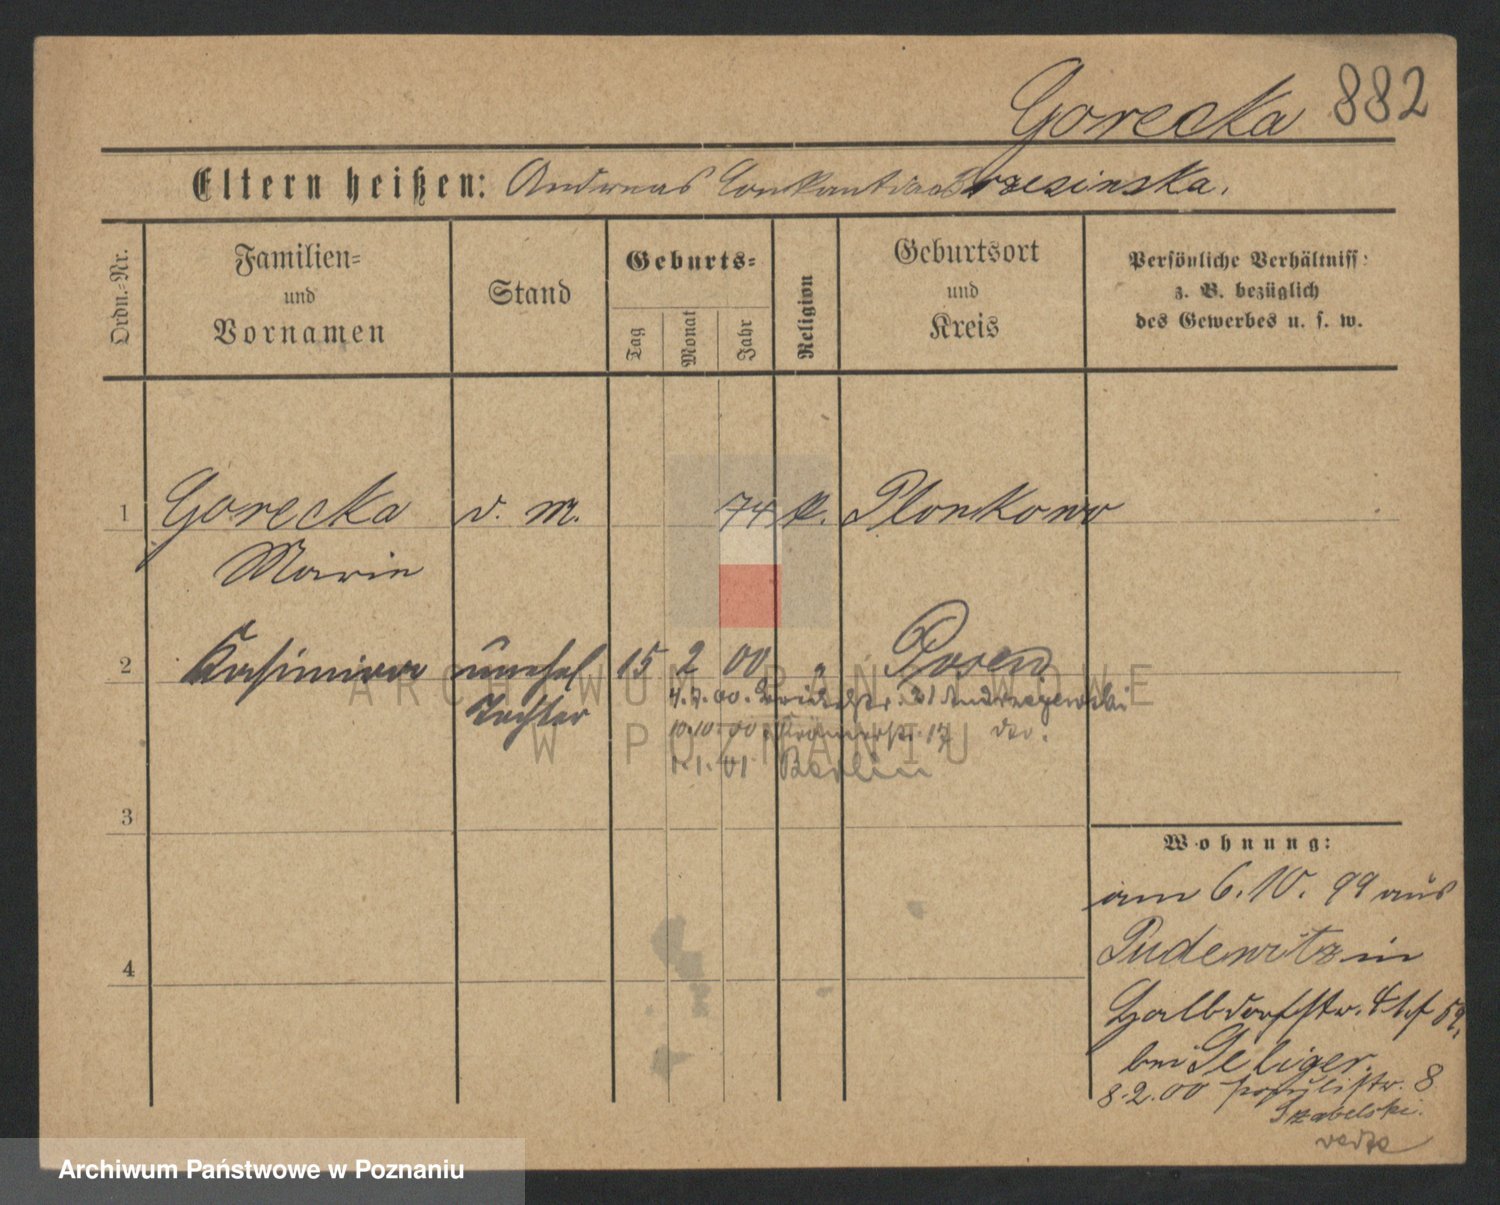 Gorecka 882
Eltern heißen: Andreas Konstantina Brzesinska.
Ordn.-Nr.
Familien-
und
Vornamen
Stand
Geburts-
Tag
Monat
Jahr
Religion
Geburtsort
und
Kreis
Persönliche Verhältniss:
z. B. bezüglich
des Gewerbes u. s. w.
1 Gorecka d. M. 74 k. Plonkowo
Marie
2 Kasimira unehel 15 2 00 Posen
Tochter
4.7.00. 31 Andrzejewski
10.10.00 17
1.1.01 Berlin
3
4
Wohnung:
am 6.10.99 aus
Pudewitz in
Halbdorfstr.
bei Seliger.
8.2.00 8
Szabelski.
ARCHIWUM PAŃSTWOWE
W POZNANIU
Archiwum Państwowe w Poznaniu